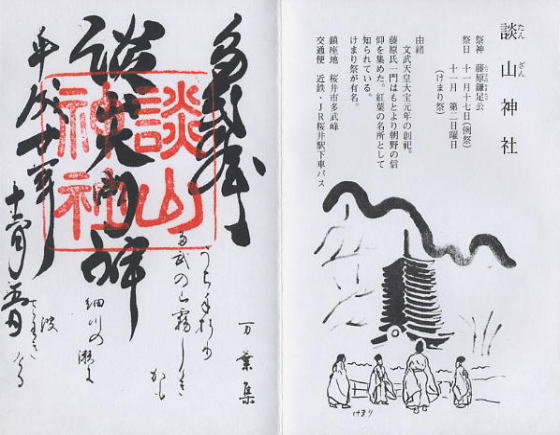 談山神社
たん ざん
祭神 藤原鎌足公
祭日 十一月十七日(例祭)
十一月 第二日曜日
(けまり祭)
由緒
文武天皇大宝元年の創祀。
藤原氏一門はもとより朝野の信
仰を集めた。紅葉の名所として
知られている。
けまり祭が有名。
鎮座地 桜井市多武峰
交通便 近鉄・JR桜井駅下車バス
けまり
談山
神社
万葉集
うち手折り
多武の山霧しげき
かも
細川の瀬に
波